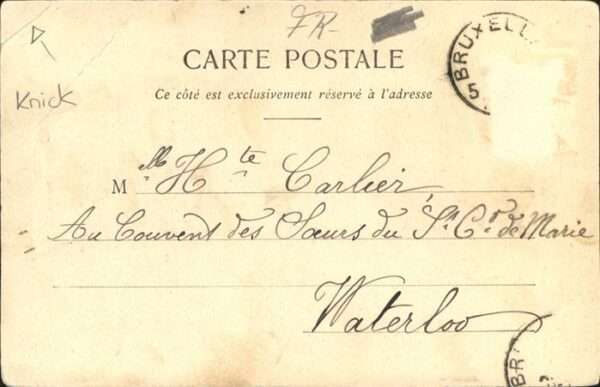 FR-
BRUXELL
5
CARTE POSTALE
Knick
Ce côté est exclusivement réservé à l'adresse
Mlle Hte Carlier,
Au Couvent des Sœurs du St. Cr. de Marie
Waterloo
BR